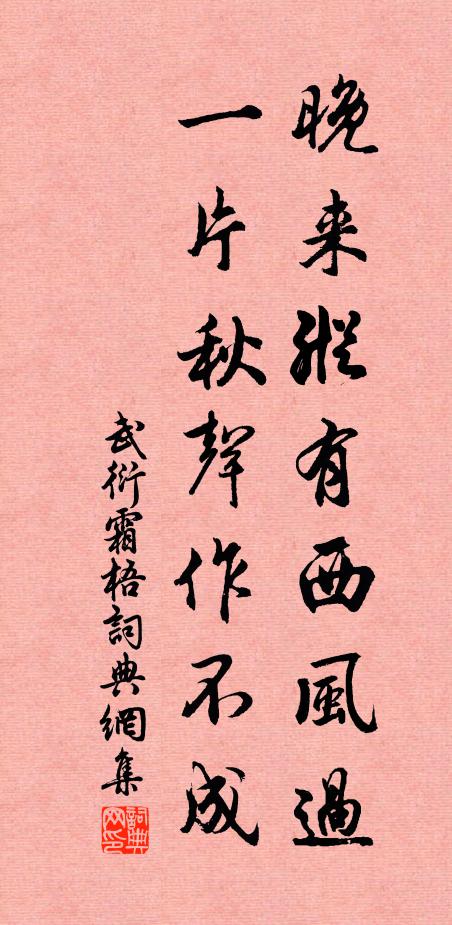 晚来縱有西風過
一片秋聲作不成
武衍霜梧詞典網集
詞典网印